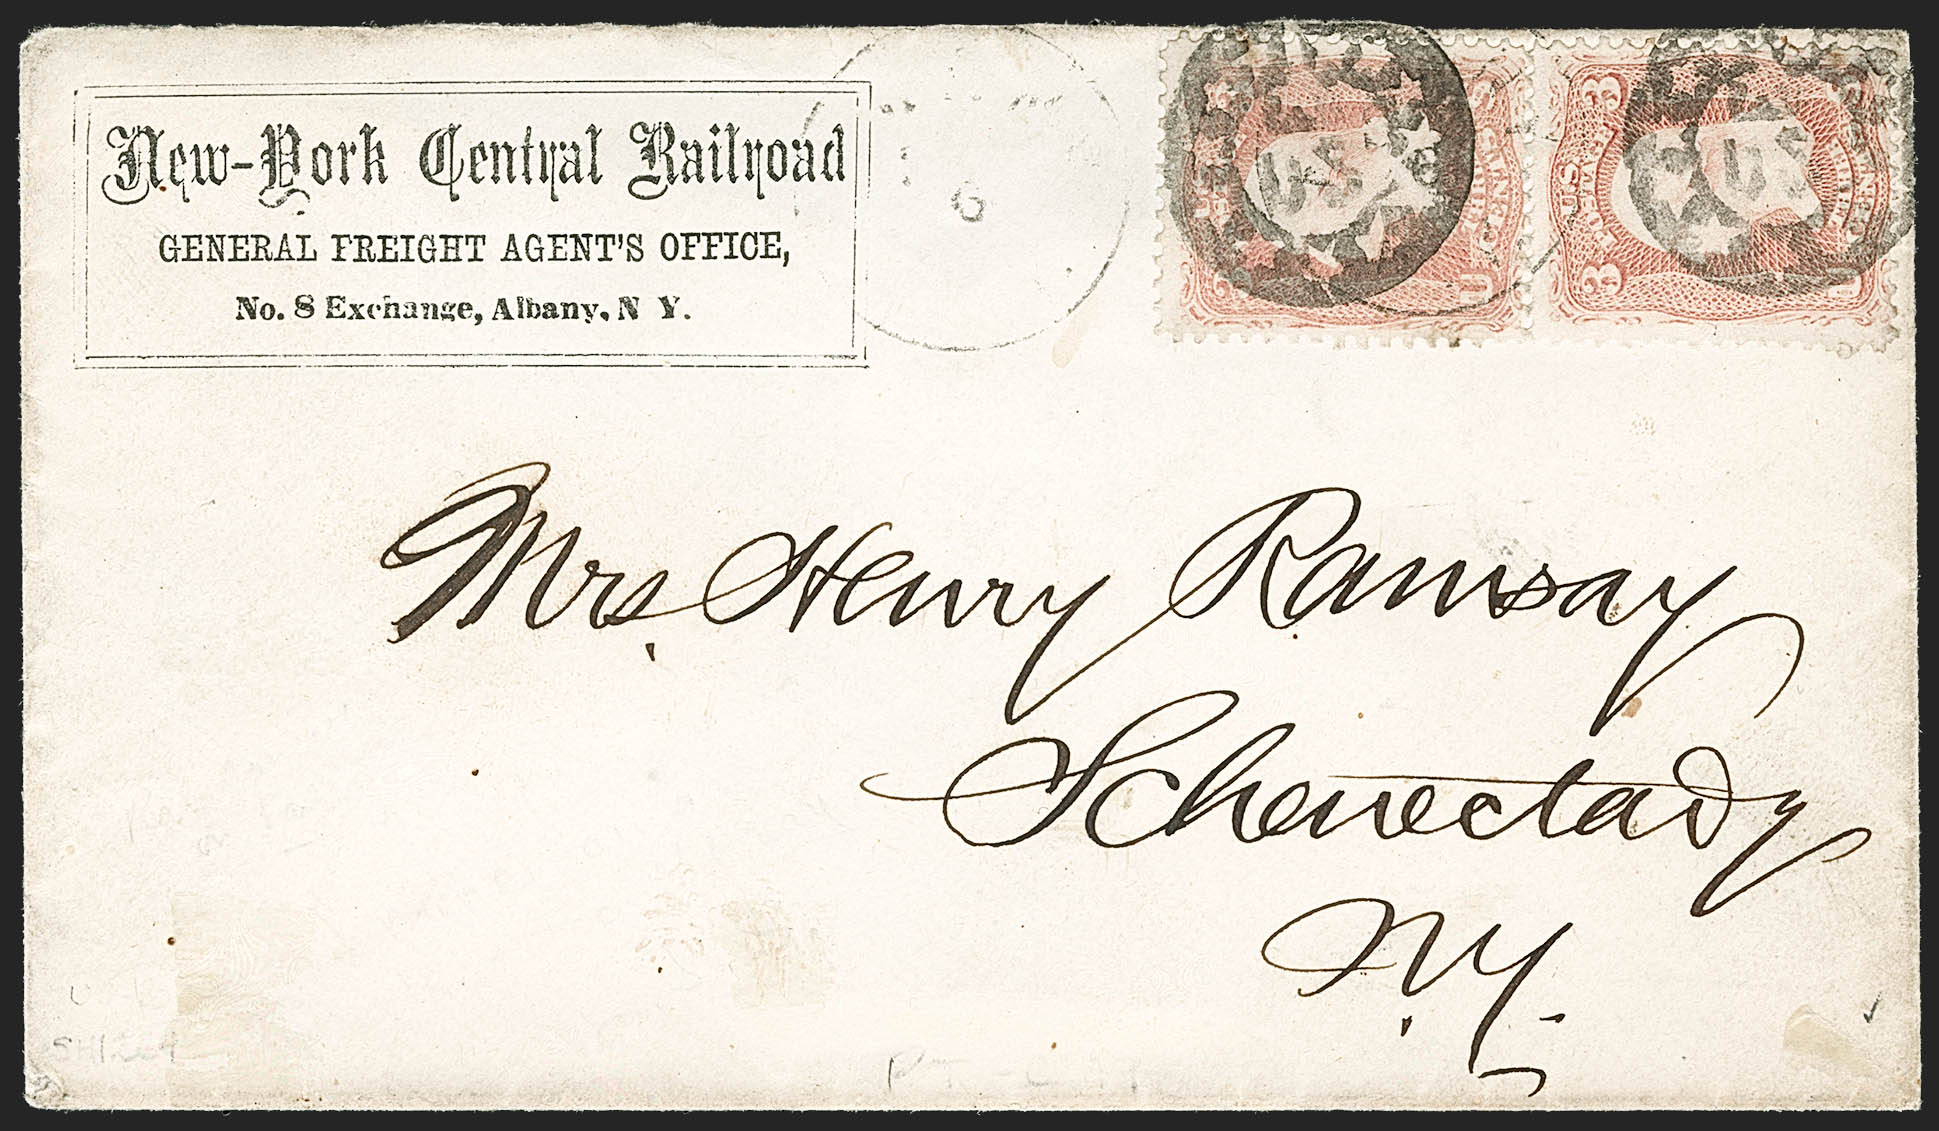 New-York Central Railroad
GENERAL FREIGHT AGENT'S OFFICE,
No. 8 Exchange, Albany, N Y.
6
U.S. POSTAGE
3 3
THREE CENTS
US
Mrs. Henry Ramsay
Schenectady
N.Y.